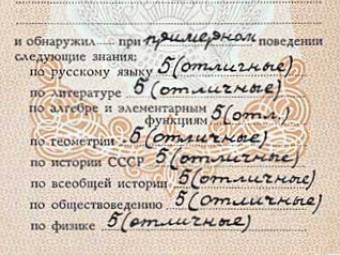 и обнаружил — при примерном поведении
следующие знания:
по русскому языку 5 (отличные)
по литературе 5 (отличные)
по алгебре и элементарным
функциям 5 (отл.)
по геометрии 5 (отличные)
по истории СССР 5 (отличные)
по всеобщей истории 5 (отличные)
по обществоведению 5 (отличные)
по физике 5 (отличные)